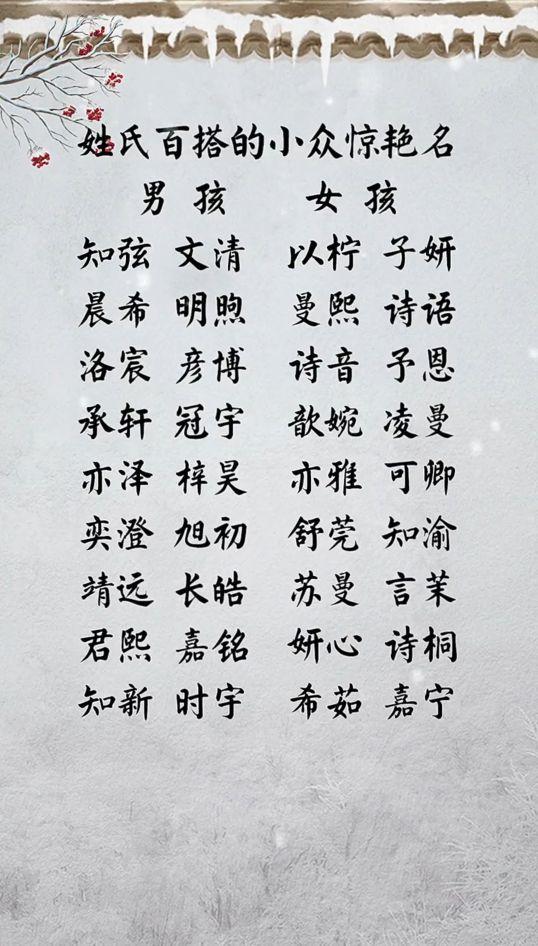 姓氏百搭的小众惊艳名
男孩 女孩
知弦 文清 以柠 子妍
晨希 明煦 曼熙 诗语
洛宸 彦博 诗音 予恩
承轩 冠宇 歆婉 凌曼
亦泽 梓昊 亦雅 可卿
奕澄 旭初 舒莞 知渝
靖远 长皓 苏曼 言茉
君熙 嘉铭 妍心 诗桐
知新 时宇 希茹 嘉宁